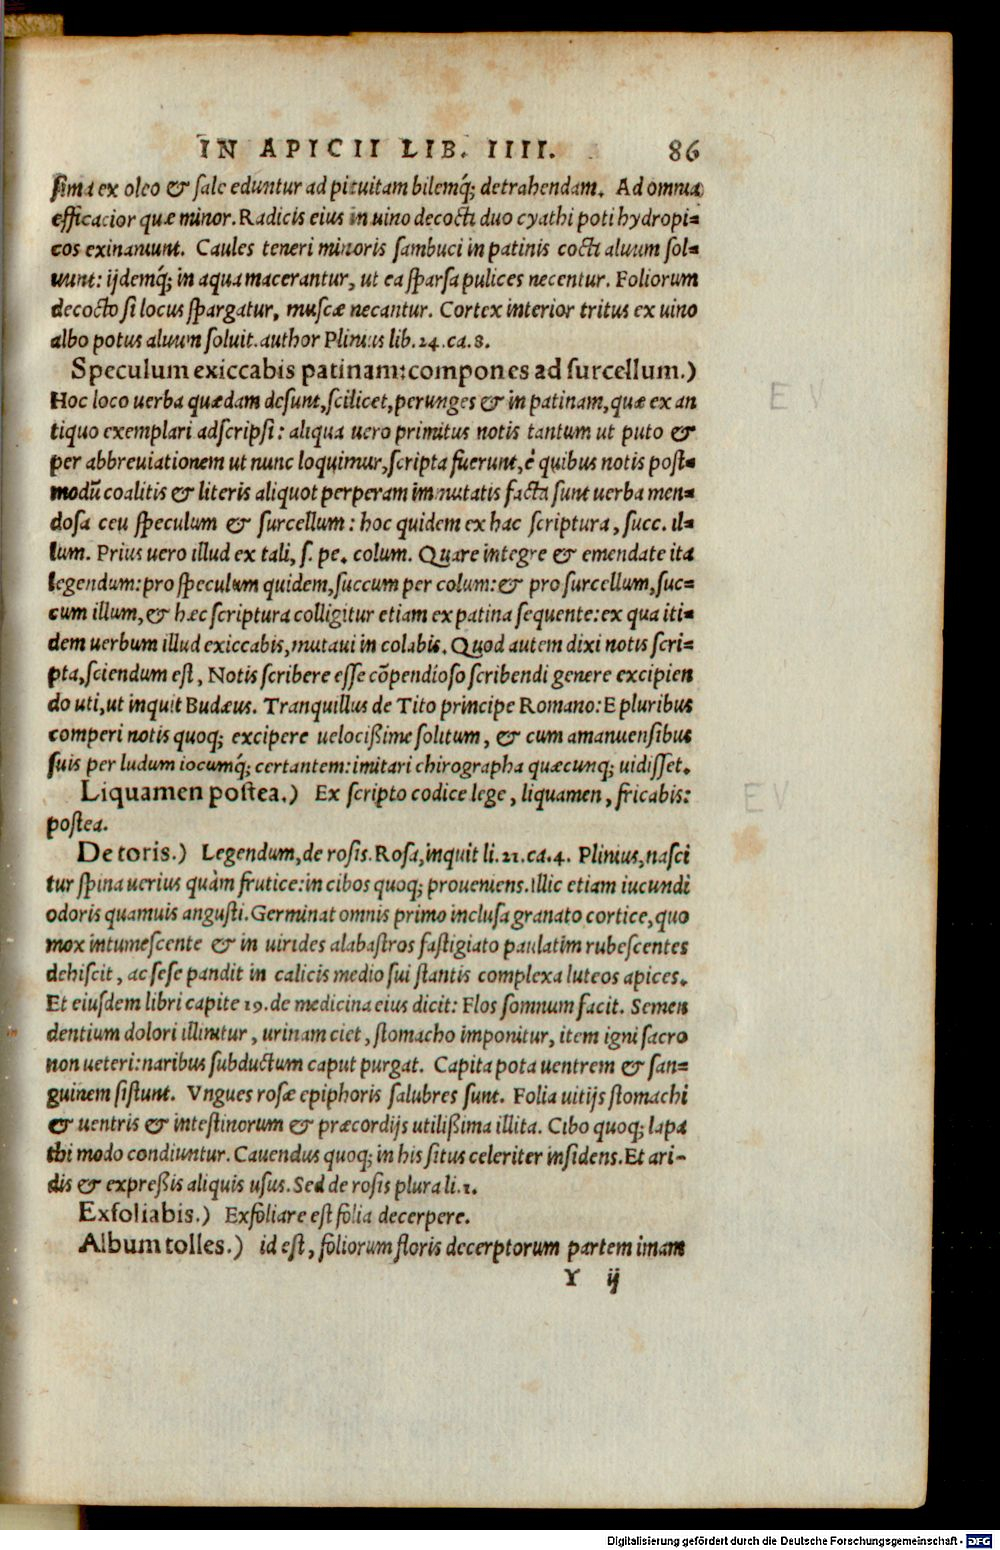 IN APICII LIB. IIII. 86
sima ex oleo & sale eduntur ad pituitam bilemq́; detrahendam. Ad omnia
efficacior quæ minor. Radicis eius in uino decocti duo cyathi poti hydropi=
cos exinaniunt. Caules teneri minoris sambuci in patinis cocti aluum sol=
uunt: ijdemq́; in aqua macerantur, ut ea sparsa pulices necentur. Foliorum
decocto si locus spargatur, muscæ necantur. Cortex interior tritus ex uino
albo potus aluum soluit. author Plinius lib. 24. ca. 8.
Speculum exiccabis patinam: compones ad surcellum.)
Hoc loco uerba quædam desunt, scilicet, perunges & in patinam, quæ ex an
tiquo exemplari adscripsi: aliqua uero primitus notis tantum ut puto &
per abbreviationem ut nunc loquimur, scripta fuerunt, è quibus notis post=
modũ coalitis & literis aliquot perperam immutatis facta sunt uerba men=
dosa ceu speculum & surcellum: hoc quidem ex hac scriptura, succ. il=
lum. Prius uero illud ex tali, s. pe. colum. Quare integre & emendate ita
legendum: pro speculum quidem, succum per colum: & pro surcellum, suc=
cum illum, & hæc scriptura colligitur etiam ex patina sequente: ex qua iti=
dem uerbum illud exiccabis, mutaui in colabis. Quod autem dixi notis scri=
pta, sciendum est, Notis scribere esse cōpendioso scribendi genere excipien
do uti, ut inquit Budæus. Tranquillus de Tito principe Romano: E pluribus
comperi notis quoq; excipere uelocißime solitum, & cum amanuensibus
suis per ludum iocumq́; certantem: imitari chirographa quæcunq; uidisset.
Liquamen postea.) Ex scripto codice lege, liquamen, fricabis:
postea.
De toris.) Legendum, de rosis. Rosa, inquit li. 21. ca. 4. Plinius, nasci
tur spina uerius quàm frutice: in cibos quoq; proueniens. Illic etiam iucundi
odoris quamuis angusti. Germinat omnis primo inclusa granato cortice, quo
mox intumescente & in uirides alabastros fastigiato paulatim rubescentes
dehiscit, ac sese pandit in calicis medio sui stantis complexa luteos apices.
Et eiusdem libri capite 19. de medicina eius dicit: Flos somnum facit. Semen
dentium dolori illinitur, urinam ciet, stomacho imponitur, item igni sacro
non ueteri: naribus subductum caput purgat. Capita pota uentrem & san=
guinem sistunt. Vngues rosæ epiphoris salubres sunt. Folia uitijs stomachi
& uentris & intestinorum & præcordijs utilißima illita. Cibo quoq; lapa
thi modo condiuntur. Cauendus quoq; in his situs celeriter insidens. Et ari-
dis & expreßis aliquis usus. Sed de rosis plura li. 1.
Exfoliabis.) Exfoliare est folia decerpere.
Album tolles.) id est, foliorum floris decerptorum partem imam
Y ij
EV
EV
Digitalisierung gefördert durch die Deutsche Forschungsgemeinschaft - DFG